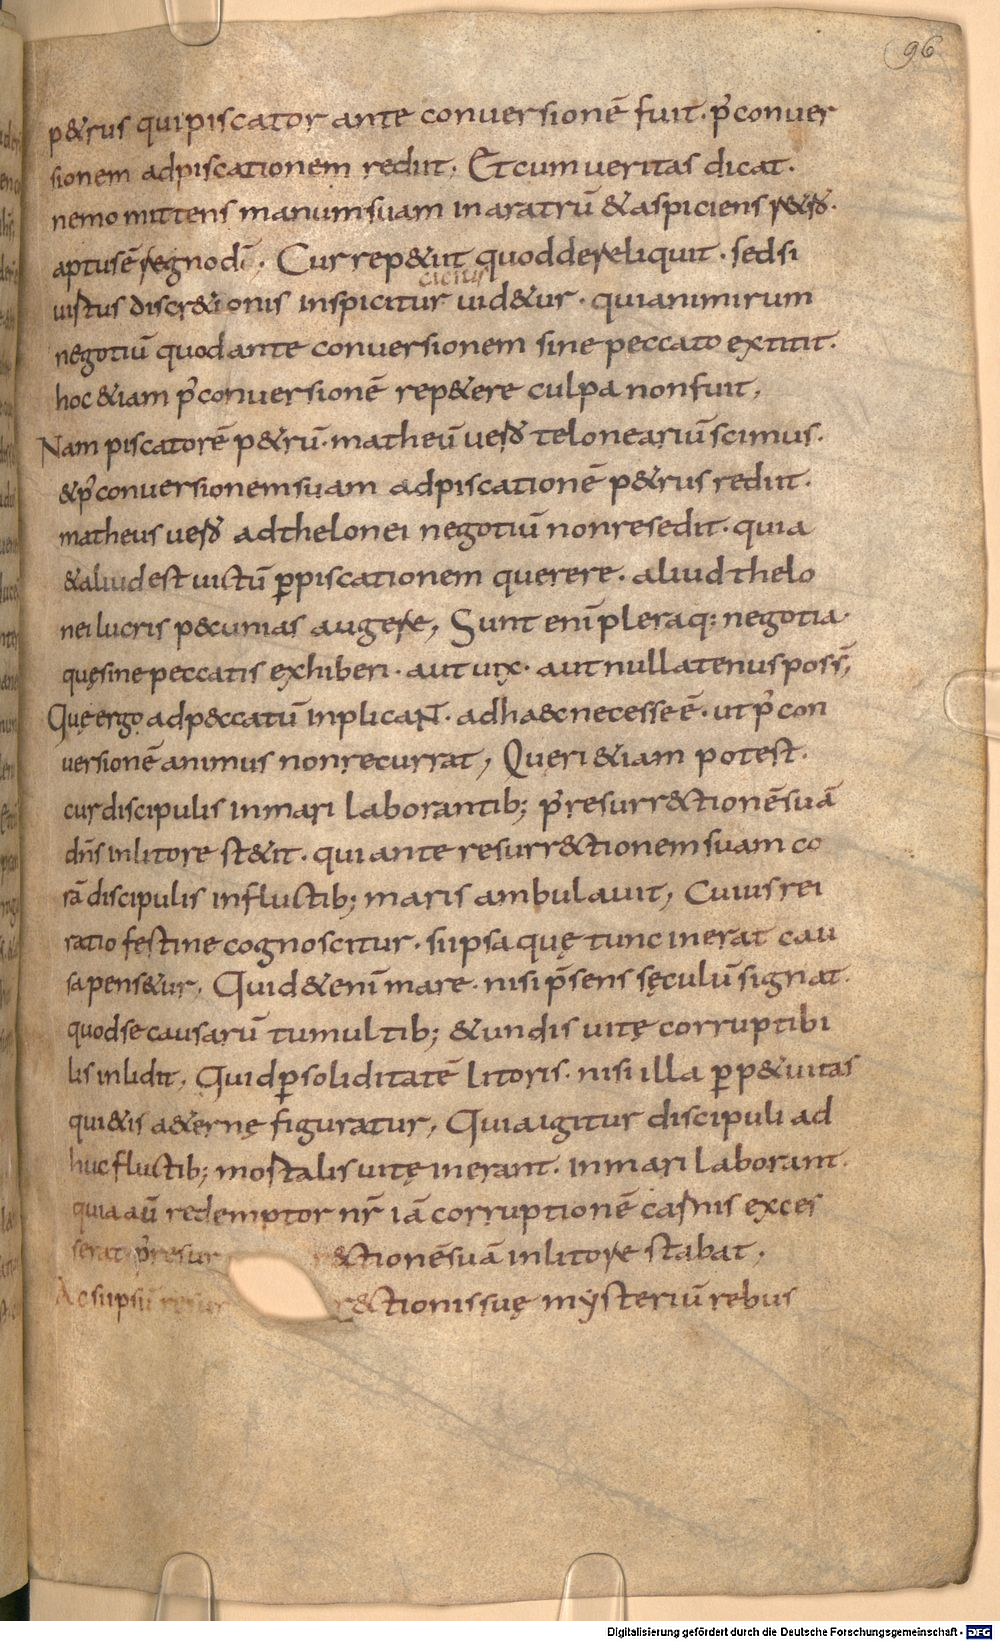 96
p&rus qui piscator ante conuersionē fuit· p᷒ conuer
sionem ad piscationem rediit, Et cum ueritas dicat·
nemo mittens manum suam in aratrū & aspiciens r&ro·
aptus ē regno dī· Cur rep&iit quod dereliquit· sed si
citius
uirtus discr&ionis inspicitur uid&ur· quia nimirum
negotiū quod ante conuersionem sine peccato extitit·
hoc &iam p᷒ conuersionē rep&ere culpa non fuit,
Nam piscatorē p&rū· matheū uero telonearium scimus·
& p᷒ conuersionem suam ad piscationē p&rus rediit·
matheus uero ad thelonei negotiū non resedit· quia
& aliud est uictū ꝑ piscationem querere· aliud thelo
nei lucris pęcunias augere, Sunt enī pleraq: negotia·
quę sine peccatis exhiberi· aut uix· aut nullatenus poss̄,
Quę ergo ad p&ccatū inplicaNT· ad ha&c necesse ē· ut p᷒ con
uersionē animus non recurrat, Quęri &iam potest·
cur discipulis in mari laborantib; p᷒ resurr&ctionē suā
dn̄s in litore st&it· qui ante resurr&ctionem suam co
rā discipulis in fluctib; maris ambulauit, Cuius rei
ratio festine cognoscitur· si ipsa quę tunc inerat cau
sa pens&ur, Quid & enī mare· nisi p̄sens sęculū signat·
quod se causarū tumultib; & undis uitę corruptibi
lis inlidit, Quid ꝑ soliditatē litoris· nisi illa ꝑp&uitas
qui&is a&ernę figuratur, Quia igitur discipuli ad
huc fluctib; mortalis uitę inerant· in mari laborant·
quia aū redemptor nr̄ iā corruptionē carnis exces
serat p᷒ resur r&ctionē suā in litore stabat,
Ac si ipsū resur r&ctionis suę mẏsteriū rebus
Digitalisierung gefördert durch die Deutsche Forschungsgemeinschaft - DFG